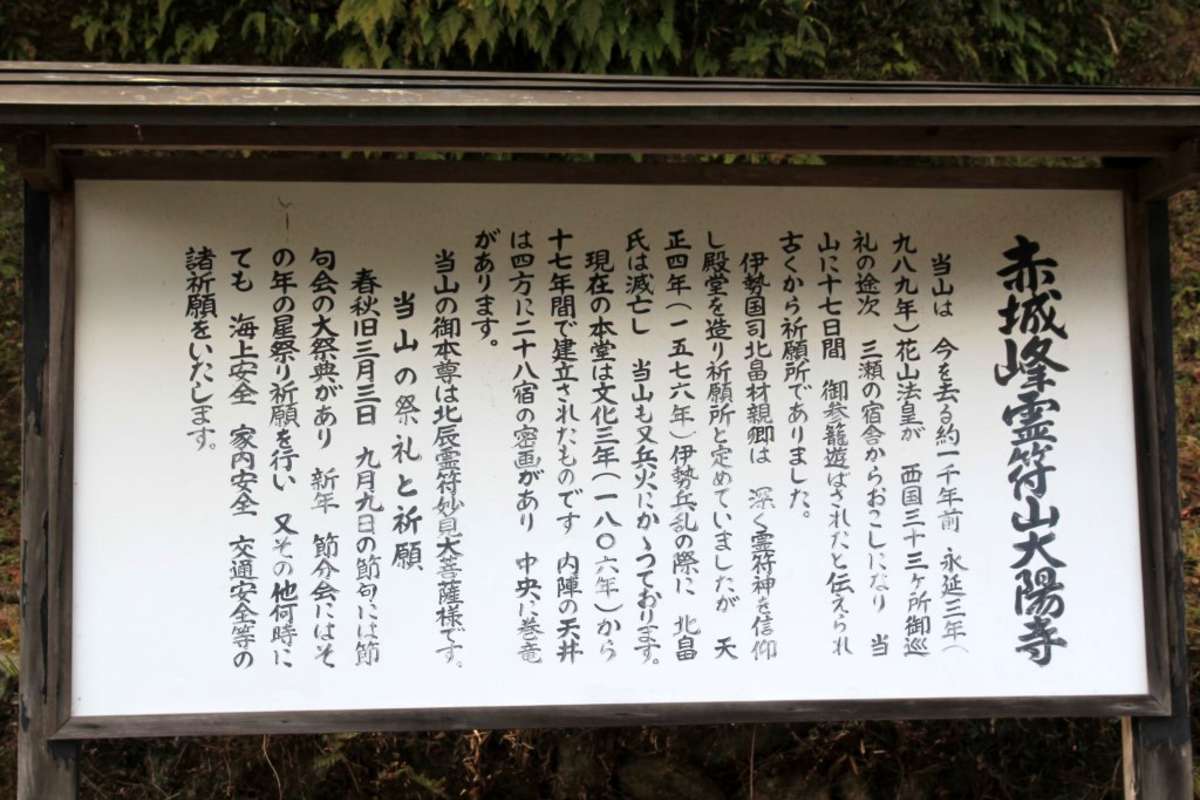 赤城峰霊符山大陽寺
当山は　今を去る約一千年前　永延三年（
九八九年）花山法皇が　西国三十三ヶ所御巡
礼の途次　三瀬の宿舎からおこしになり　当
山に十七日間　御参籠遊ばされたと伝えられ
古くから祈願所でありました。
伊勢国司北畠材親卿は　深く霊符神を信仰
し殿堂を造り祈願所と定めていましたが　天
正四年（一五七六年）伊勢兵乱の際に　北畠
氏は滅亡し　当山も又兵火にかゝつております。
現在の本堂は文化三年（一八〇六年）から
十七年間で建立されたものです　内陣の天井
は四方に二十八宿の密画があり　中央に巻竜
があります。
当山の御本尊は北辰霊符妙見大菩薩様です。
当山の祭礼と祈願
春秋旧三月三日　九月九日の節句には節
句会の大祭典があり　新年　節分会にはそ
の年の星祭り祈願を行い　又その他何時に
ても　海上安全　家内安全　交通安全等の
諸祈願をいたします。